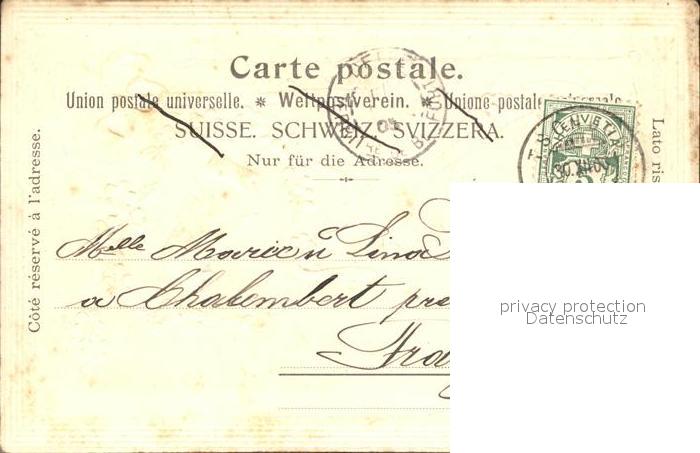 Carte postale.
Union postale universelle. * Weltpostverein. * Unione postale universale
SUISSE. SCHWEIZ. SVIZZERA.
Nur für die Adresse.
Côté réservé à l'adresse.
Lato ris
HELVETIA
Melle Marie Lina
a Chalembert pre
privacy protection
Datenschutz